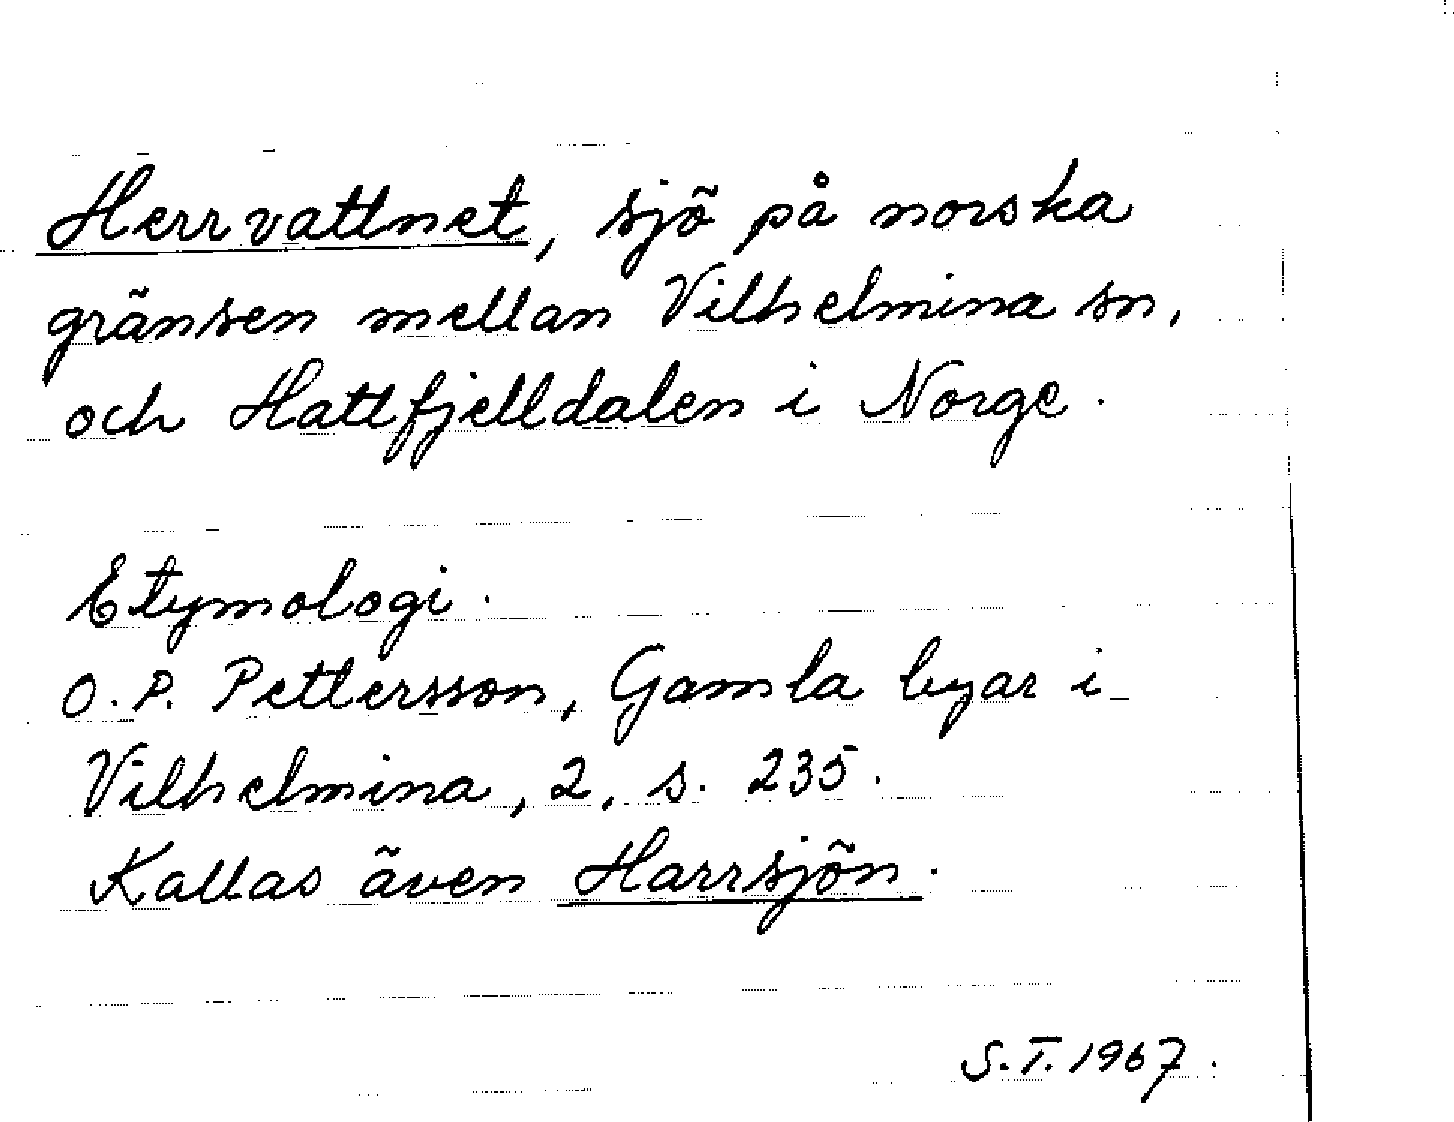 Herrvattnet, sjö på norska
gränsen mellan Vilhelmina sn,
och Hattfjelldalen i Norge.
Etymologi.
O.P. Pettersson, Gamla byar i
Vilhelmina, 2, s. 235.
Kallas även Harrsjön.
S.T. 1967.